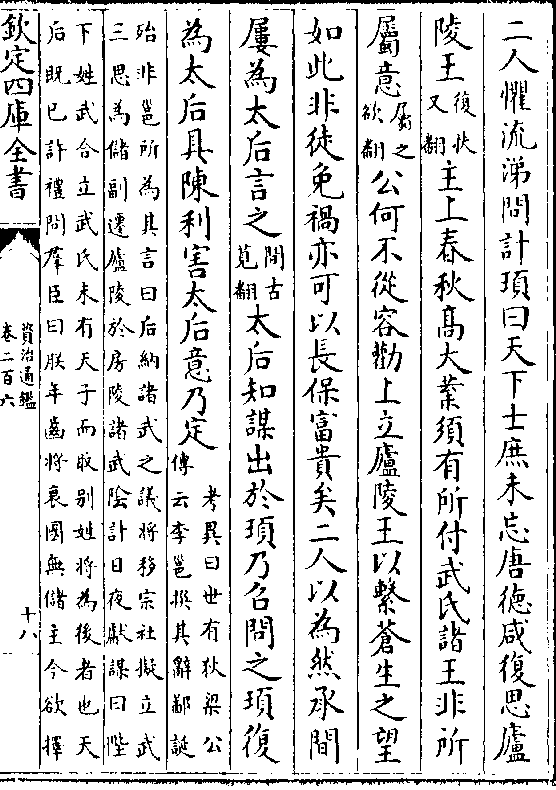 二人懼流涕問計頊曰天下士庶未忘唐徳咸復思廬
陵王復扶又翻主上春秋髙大業須有所付武氏諸王非所
屬意屬之欲翻公何不從容勸上立廬陵王以繫蒼生之望
如此非徒免禍亦可以長保富貴矣二人以為然承間
屢為太后言之間古莧翻太后知謀出於頊乃召問之頊復
為太后具陳利害太后意乃定考異曰世有狄梁公
傳云李邕撰其辭鄙誕
殆非邕所為其言曰后納諸武之議將移宗社擬立武
三思為儲副遷廬陵於房陵諸武陰計日夜獻謀曰陛
下姓武合立武氏未有天子而取别姓將為後者也天
后既已許禮問羣臣曰朕年齒將衰國無儲主今欲擇
欽定四庫全書
資治通鑑
卷二百六
十八